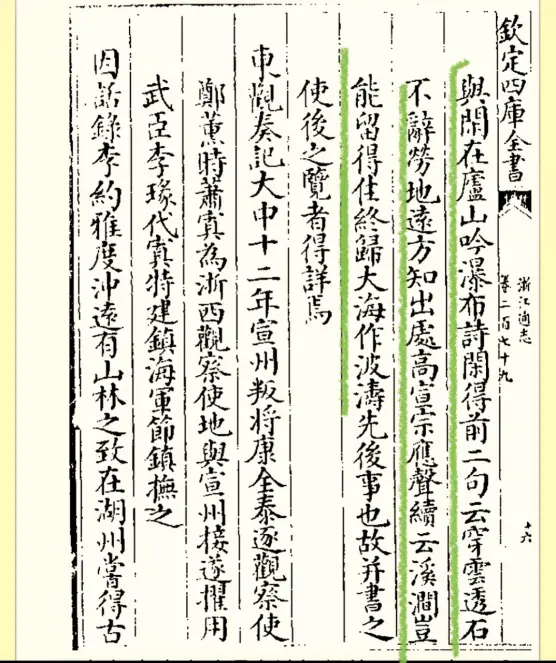 欽定四庫全書
浙江通志
卷二百七十九
十六
與閑在廬山吟瀑布詩閑得前二句云穿雲透石
不辭勞地遠方知出處高宣宗應聲續云溪澗豈
能留得住終歸大海作波濤先後事也故并書之
使後之覽者得詳焉
東觀奏記大中十二年宣州叛將康全泰逐觀察使
鄭薫時蕭寘為浙西觀察使地與宣州接遂擢用
武臣李琢代寘特建鎮海軍節鎮撫之
因話錄李約雅度沖遠有山林之致在湖州嘗得古